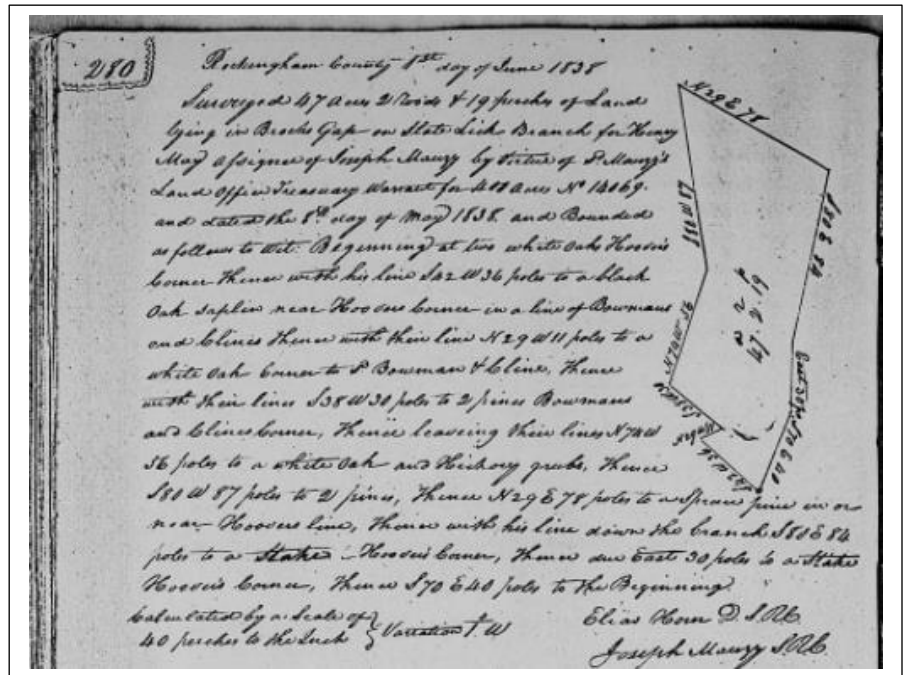 280
Rockingham County 1st day of June 1838
Surveyed 47 Acres 2 Roods & 19 perches of Land
lying in Brocks Gap on State Lick Branch for Henry
May Assignee of Joseph Mauzy by virtue of S Mauzy's
Land Office Treasury Warrant for 400 Acres No 14069.
and dated the 8th day of May 1838 and Bounded
as follows to Wit. Beginning at two white Oaks Hoover's
Corner Thence with his line S42 W 36 poles to a black
Oak saplin near Hoovers Corner in a line of Bowmans
and Clines Thence with their line N 29 W 11 poles to a
white Oak Corner to P Bowman & Cline, Thence
with their lines S38 W 30 poles to 2 pines Bowmans
and Clines Corner, Thence leaveing their lines N 74 W
56 poles to a white Oak and Hickory grubs, Thence
S80 W 87 poles to 2 pines, Thence N 29 E 78 poles to a Spruce pine in or
near Hoovers line, Thence with his line down the branch S80 E 84
poles to a Stake Hoover's Corner, Thence due East 30 poles to a Stake
Hoover's Corner, Thence S 70 E 40 poles to the Beginning
Calculated by a Scale of
40 perches to the Inch
Variation 1° W
Elias Horn D.S.R.C.
Joseph Mauzy S.R.C.
N 29 E 78
S80 E 84
East 30 po
S70 E 40
S42 W 36
S38 W 30
N 74 W 56
S80 W 87
A R P
47.2.19